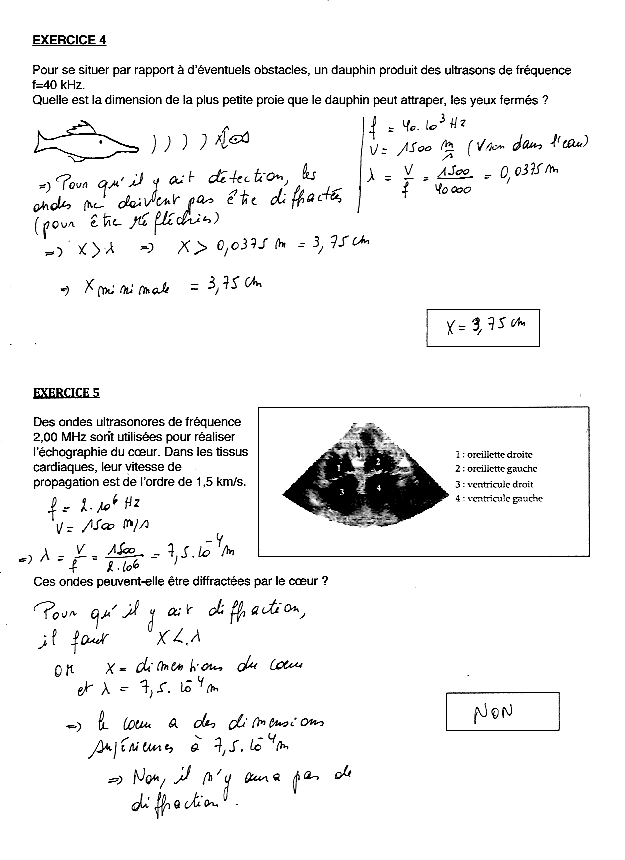 EXERCICE 4
Pour se situer par rapport à d'éventuels obstacles, un dauphin produit des ultrasons de fréquence
f=40 kHz.
Quelle est la dimension de la plus petite proie que le dauphin peut attraper, les yeux fermés ?
f = 40.10³ Hz
V = 1500 m/s (V son dans l'eau)
λ = V/f = 1500/40000 = 0,0375 m
=) Pour qu'il y ait détection, les
ondes ne doivent pas être diffractés
(pour être réfléchies)
=) X > λ =) X > 0,0375 m = 3,75 cm
=) X minimale = 3,75 cm
X = 3,75 cm
EXERCICE 5
Des ondes ultrasonores de fréquence
2,00 MHz sont utilisées pour réaliser
l'échographie du cœur. Dans les tissus
cardiaques, leur vitesse de
propagation est de l'ordre de 1,5 km/s.
1 2
3 4
1 : oreillette droite
2 : oreillette gauche
3 : ventricule droit
4 : ventricule gauche
f = 2.10⁶ Hz
V = 1500 m/s
=) λ = V/f = 1500/2.10⁶ = 7,5.10⁻⁴ m
Ces ondes peuvent-elle être diffractées par le cœur ?
Pour qu'il y ait diffraction,
il faut X < λ
or X = dimentions du cœur
et λ = 7,5.10⁻⁴ m
=) le cœur a des dimensions
supérieures à 7,5.10⁻⁴ m
=) Non, il n'y aura pas de
diffraction.
NON